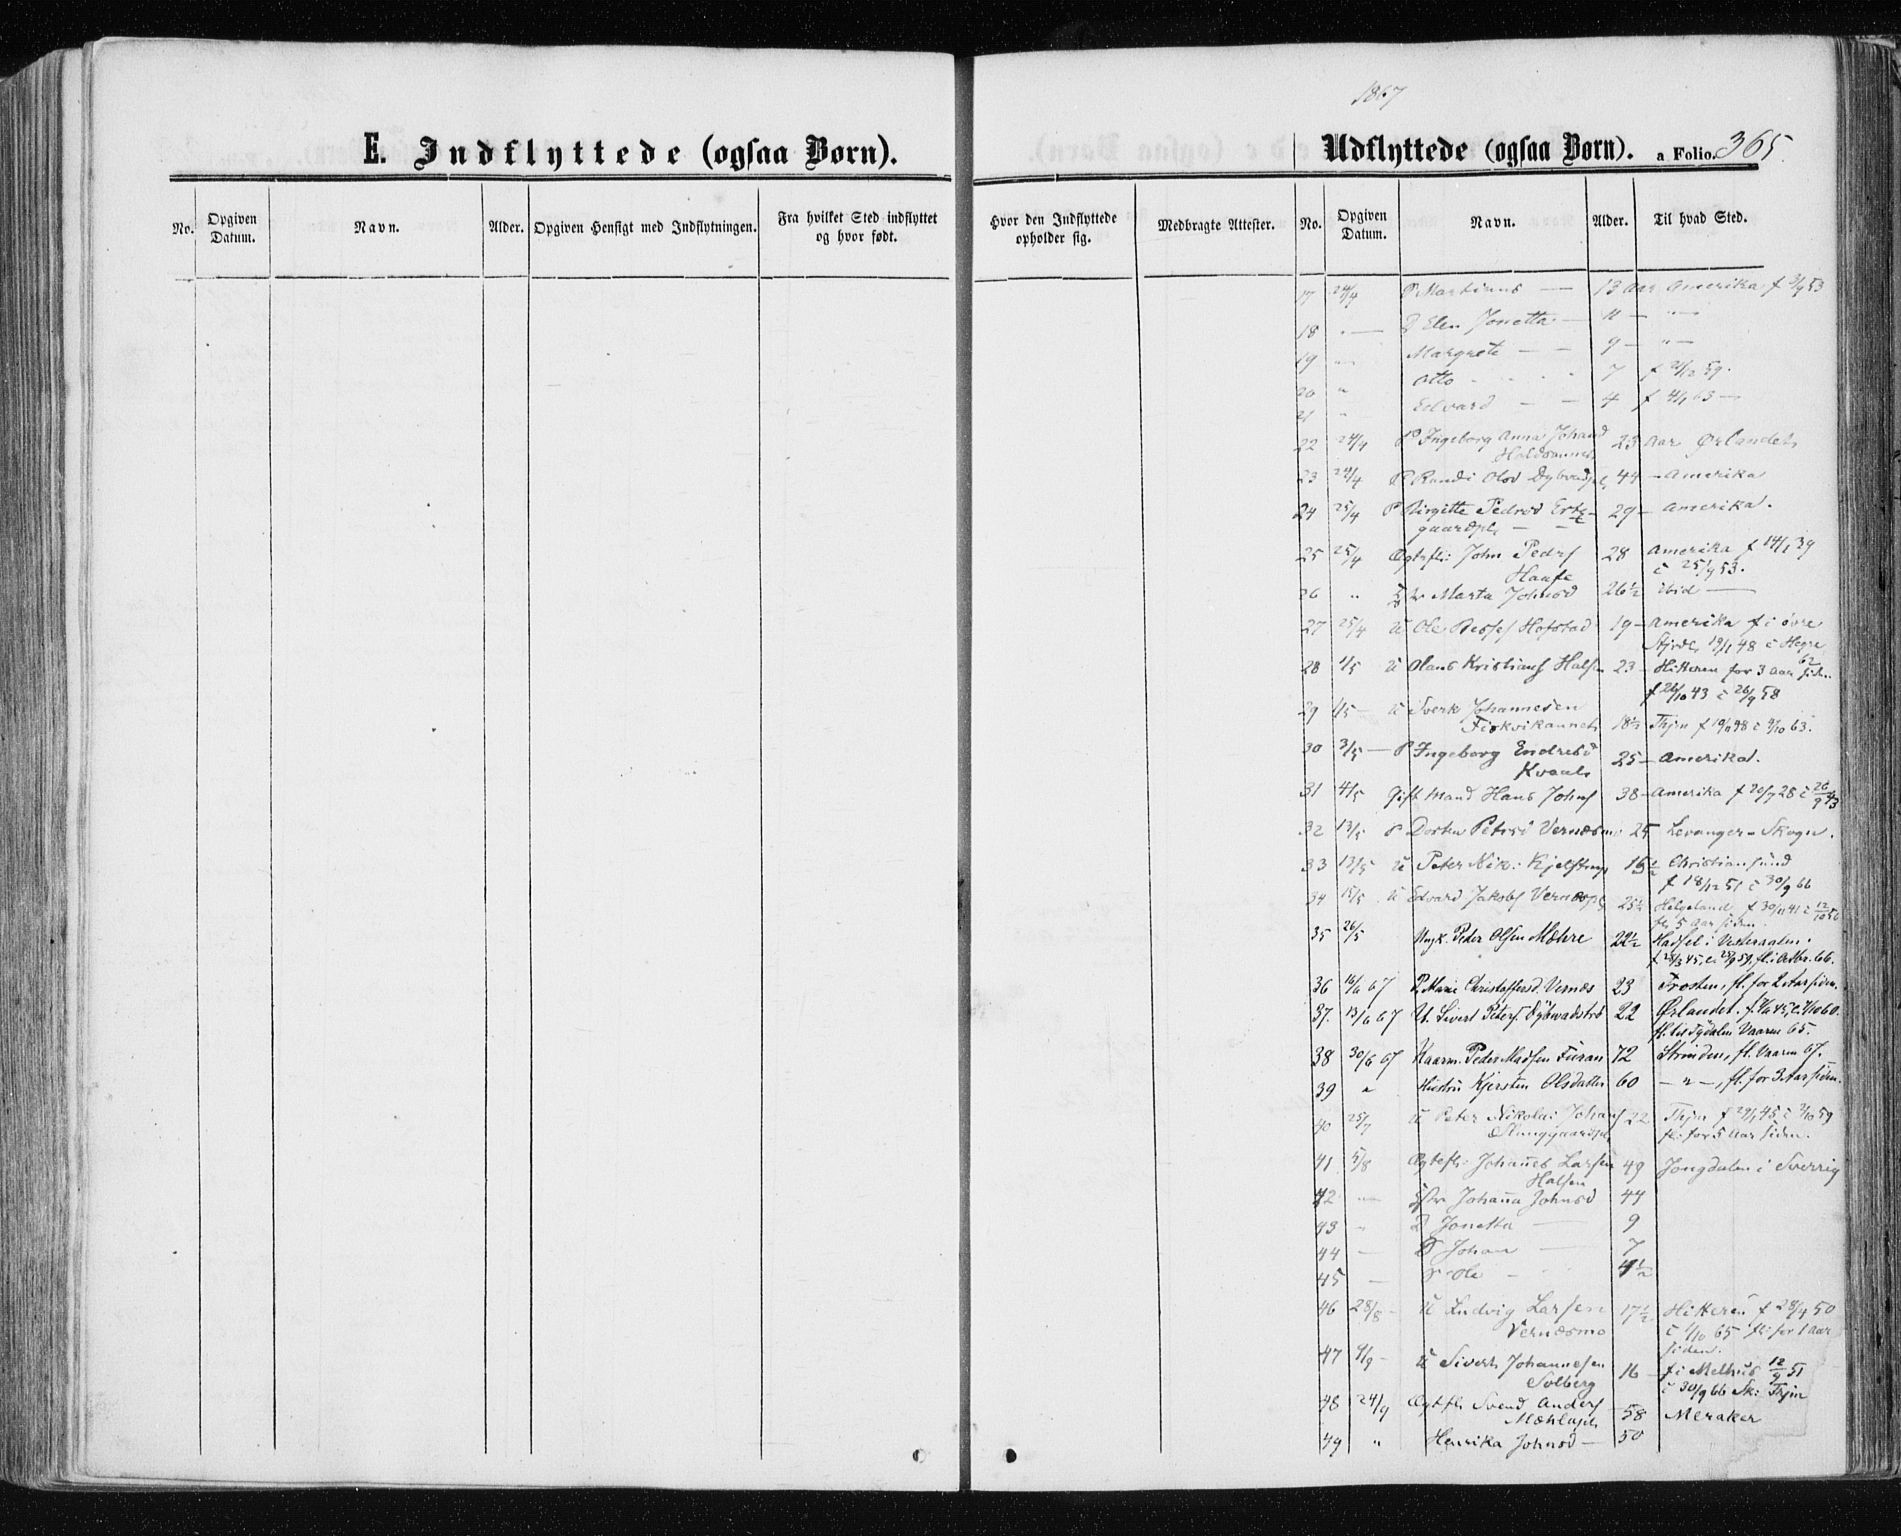 E. Indflyttede (ogsaa Børn).
No. Opgiven Datum. Navn. Alder. Opgiven Hensigt med Indflytningen. Fra hvilket Sted indflyttet og hvor født.
1867
Udflyttede (ogsaa Børn). a Folio. 365.
Hvor den Indflyttede opholder sig. Medbragte Attester. No. Opgiven Datum. Navn. Alder. Til hvad Sted.
17 24/4 Martinus — 13 Aar Amerika f 3/9 53
18 " — Elen Jonetta — 11 — " —
19 " Margrete — — 9 — " —
20 " Otto 7 f 59.
21 " Edvard — — 4 f 4/1 63 —
22 24/4 P Ingeborg Anna Johansd 23 Aar Ørlandet
23 24/4 P Randi Olsd 44 — Amerika
24 25/4 P Birgitte Pedrsd 29 — Amerika.
25 25/4 Ægtefl: John Peders 28 Amerika f 14/1 39
c 25/9 53.
26 " Marta Johnsd 26 1/2 ibid —
27 25/4 U Ole Hofstad 19 — Amerika f i øvre
Stjrdl 19/1 48 c Hegre
62
28 1/5 U Olaus Kristians Halsen 23 — Hitteren for 3 Aar siden.
f 26/10 43 c 26/9 58
29 1/5 — U Sverke Johannesen
Fiskvikaunet 18 1/2 Thjm c 4/10 63.
30 3/5 — P Ingeborg Endresd
Kvaals 25 — Amerika.
31 4/5 Gift Mand Hans Johns 38 — Amerika f 20/7 28 c 26/9 43
32 13/5 P Dortea Petrsd Vernæsmo 25 Levanger - Skogn.
33 13/5 U Peter Nik: Kjelstrup 15 1/2 Christiansund
f 18/12 51 c 30/9 66
34 15/5 U Edvard Jakobs 25 1/2 Helgeland f 30/11 41 c 12/10 56
fl. 5 Aar siden.
35 26/5 Ungk. Peder Olsen Mæhre 22 1/2 Hadsel i Vesteraalen.
f. 28/3 45, c. 25/9 59, fl. i Octbr. 66.
36 16/6 67 P. Marie Christoffersd. Vernæs 23 Frosten, fl. for 2 Aar siden.
37. 13/6 67 U. Sivert Peters. Dybvadstrø 22 Ørlandet. 45, c. 7/10 60.
fl. til Tydalen Vaaren 65.
38 30/6 67 Kaarm. Peder Madsen Furan 72 Strinden, fl. Vaaren 67.
39 " Hustru Kjersten Olsdatter 60 — " —, fl. for 3 Aar siden.
40 25/7 U Peter Nikolai Johans 22 Thjm f 29/1 45 c 2/10 59
fl: for 5 Aar siden.
41 5/8 Ægtefl: Johanes Larsen 49 Jongdalen i Sverrig
Halsen
42 — Johana Johnsd 44
43 " D Jonetta — 9
44 — S Johan — 7
45 — S Ole — 4 1/2
46 28/8 — U Ludvig Larsen 17 1/2 Hitteren f 28/4 50
Vernæsmo c 1/10 65 fl: for 1 Aar
siden.
47 4/9 — U Sivert Johannesen 16 f i Melhus 12/9 51
Solberg c 30/9 66 Sk: Thjm
48 24/9 Ægtefl. Svend Anders 58 Meraker
49 " Henrika Johnsd — 50